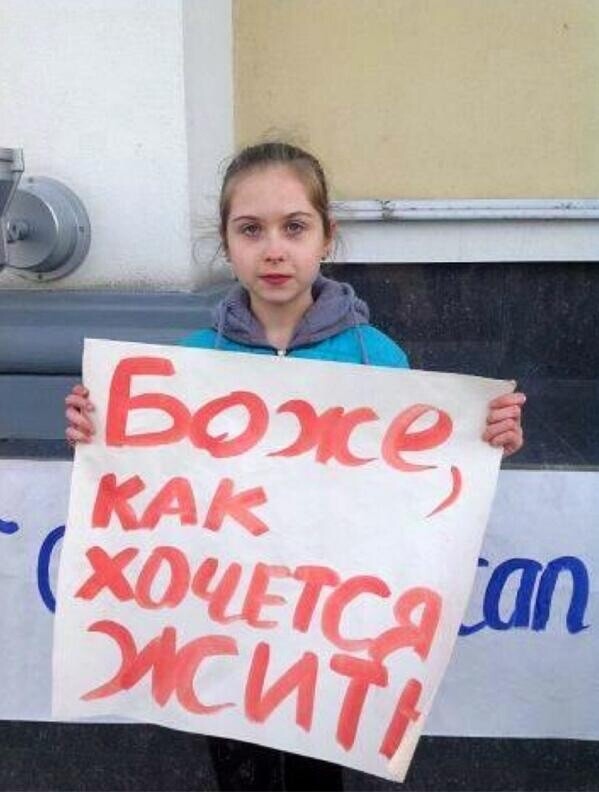 Боже,
КАК
ХОЧЕТСЯ
ЖИТЬ
can